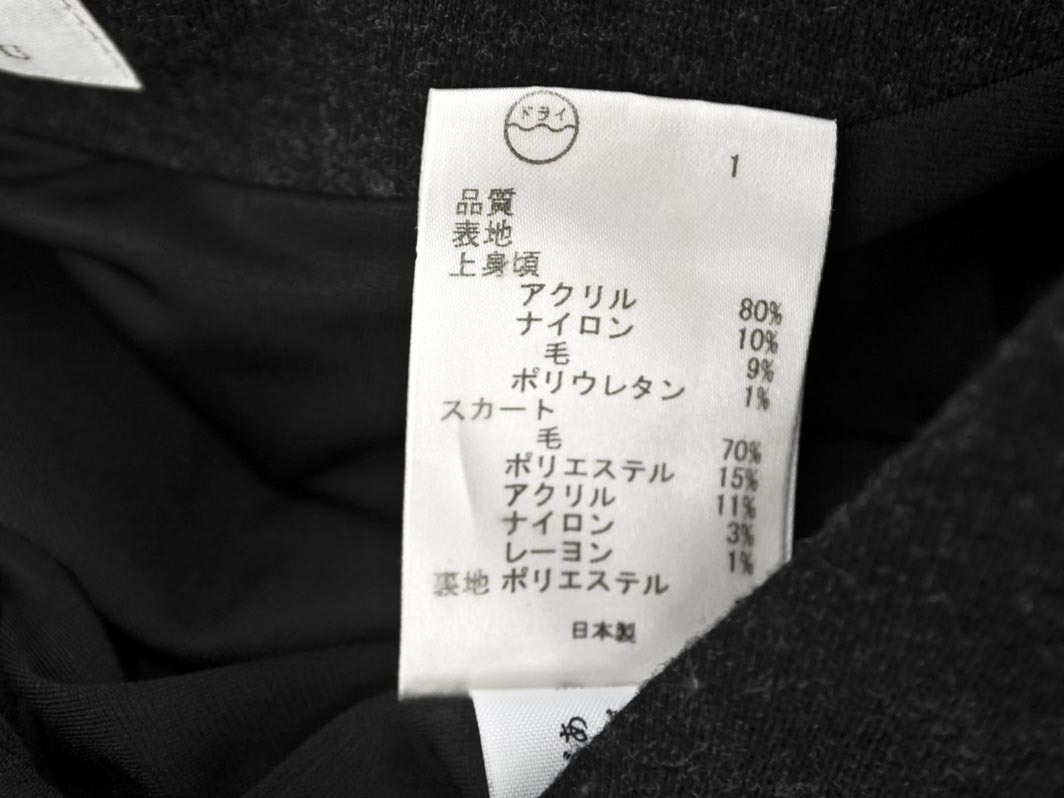 ドライ
1
品質
表地
上身頃
アクリル 80%
ナイロン 10%
毛 9%
ポリウレタン 1%
スカート
毛 70%
ポリエステル 15%
アクリル 11%
ナイロン 3%
レーヨン 1%
裏地 ポリエステル
日本製
あ
G